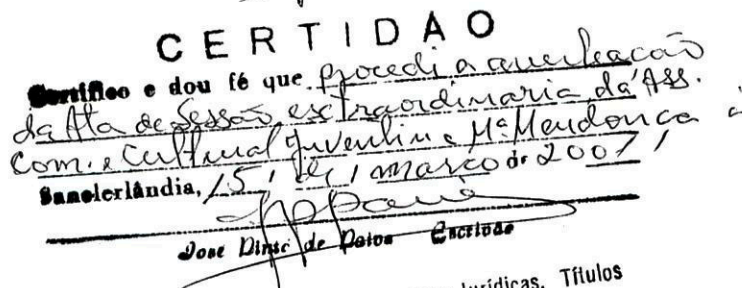 CERTIDAO
Certifico e dou fé que procedi a averbação
da Ata de Sessão extraordinaria da Ass.
Com. e Cultural Juventina Mª Mendonça
Sanclerlândia, 15 de março de 2007
José Diniz de Paiva Escrivão
Jurídicas, Títulos